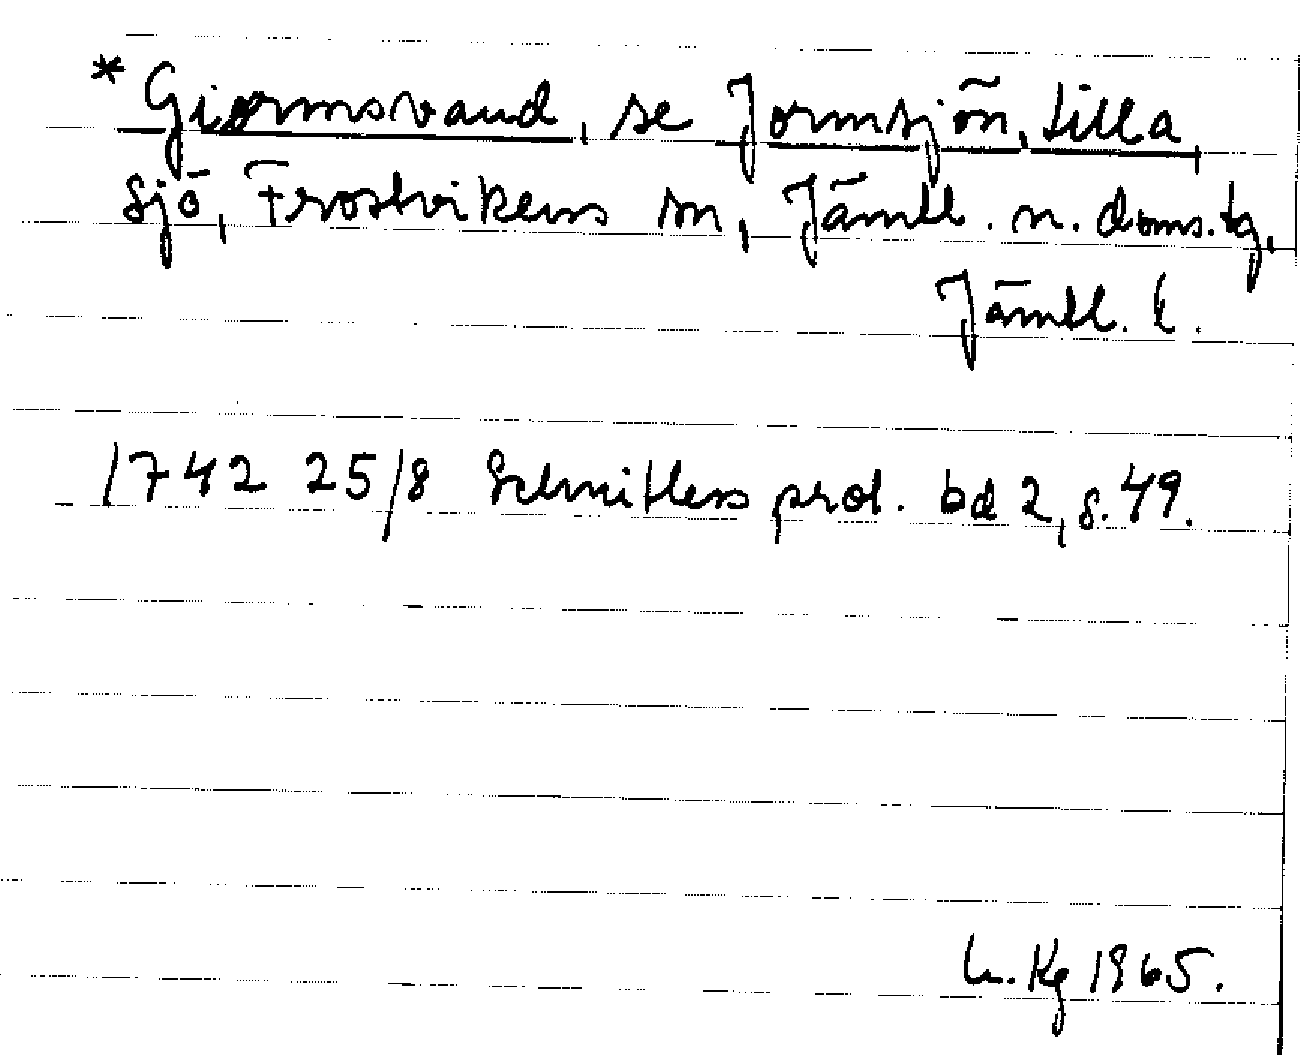 * Giormsvand, se Jormsjön, Lilla,
sjö, Frostvikens sn, Jämtl. n. doms.tg,
Jämtl. l.
1742 25/8 Schnitlers prot. bd 2, s. 49.
Kg 1965.